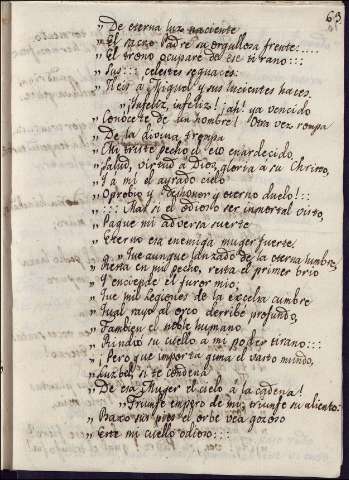 63
„ De eterna luz naciente
„ El sacro Padre su orgullosa frente:....
„ El trono ocuparé de ese tirano:::
„ Sus::: celestes sequaces:
„ Veis á Miguel y sus lucientes haces.
„ ¡Infeliz, infeliz! ¡ah! ya vencido
„ Conocete de un hombre! Otra vez rompa
„ De la divina trompa
„ Mi triste pecho el eco enardecido,
„ Salud, virtud á Dios, gloria á su Christo,
„ Y á mi el ayrado cielo
„ Oprobio y deshonor y eterno duelo!::
„ ::: Mas si el odioso ser inmortal visto,
„ Pague mi adversa suerte
„ Eterno esa enemiga muger fuerte.
„ Fue aunque lanzado de la eterna lumbre,
„ Resta en mi pecho, resta el primer brio
„ Y enciende el furor mio,
„ Fue mil legiones de la excelsa cumbre
„ Qual rayo al orco derribé profundo,
„ Tambien el noble humano
„ Rindió su cuello á mi poder tirano:::
„ ¡Pero que importa gima el vasto mundo,
„ Luzbel, si te condena
„ De esa Muger el cielo á la cadena!
„ Triunfe empero de mi; triunfe su aliento:
„ Baxo sus pies el orbe vea gozoso
„ Este mi cuello odioso:::